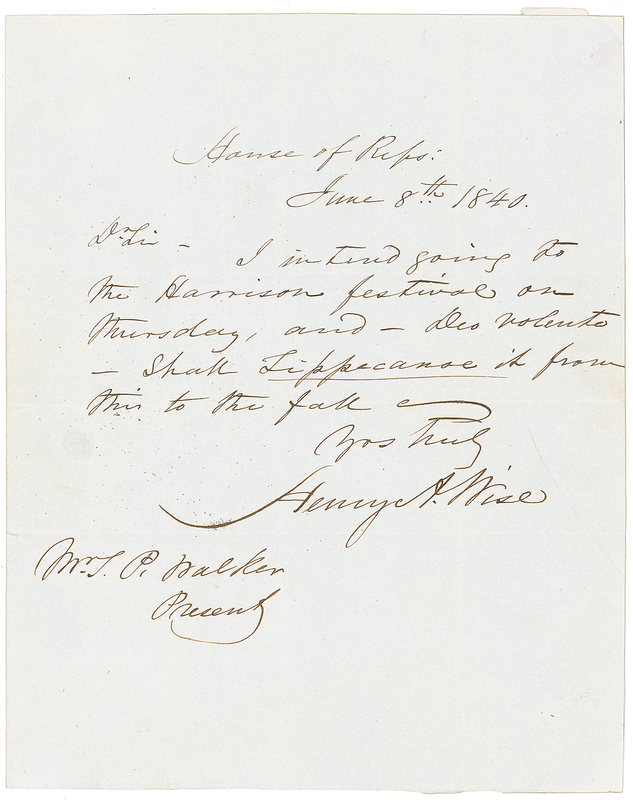 House of Reps:
June 8th 1840.
Dr Sir – I intend going to
the Harrison festival on
thursday, and – Deo volente
– Shall Tippecanoe it from
this to the fall
Yrs truly
Henry A. Wise
Mr. S. P. Walker
Present